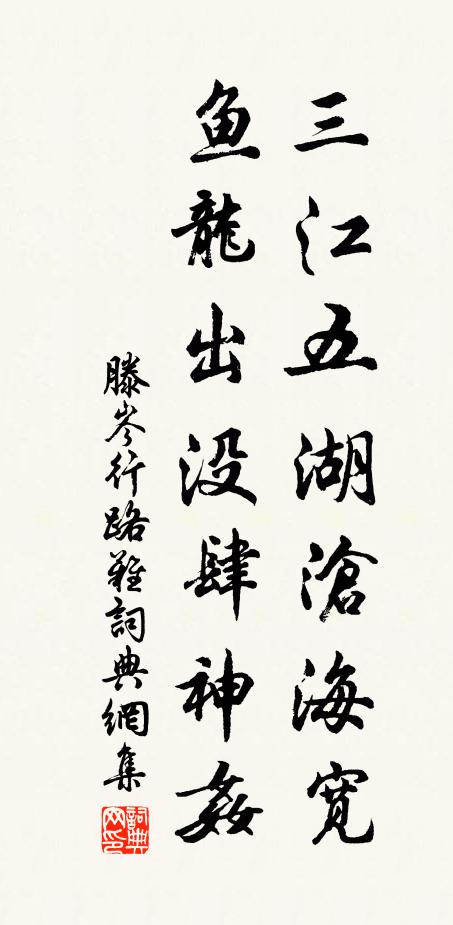 三江五湖滄海寬
鱼龍出没肆神姦
滕岑行路難詞典網集
詞典網印